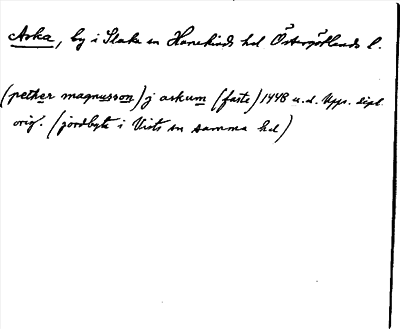 Aska, by i Slaka sn Hanekinds hd Östergötlands l.
(pether magnusson) j askum (faste) 1448 u.d. Upps. dipl.
orig. (jordbyte i Vists sn samma hd)